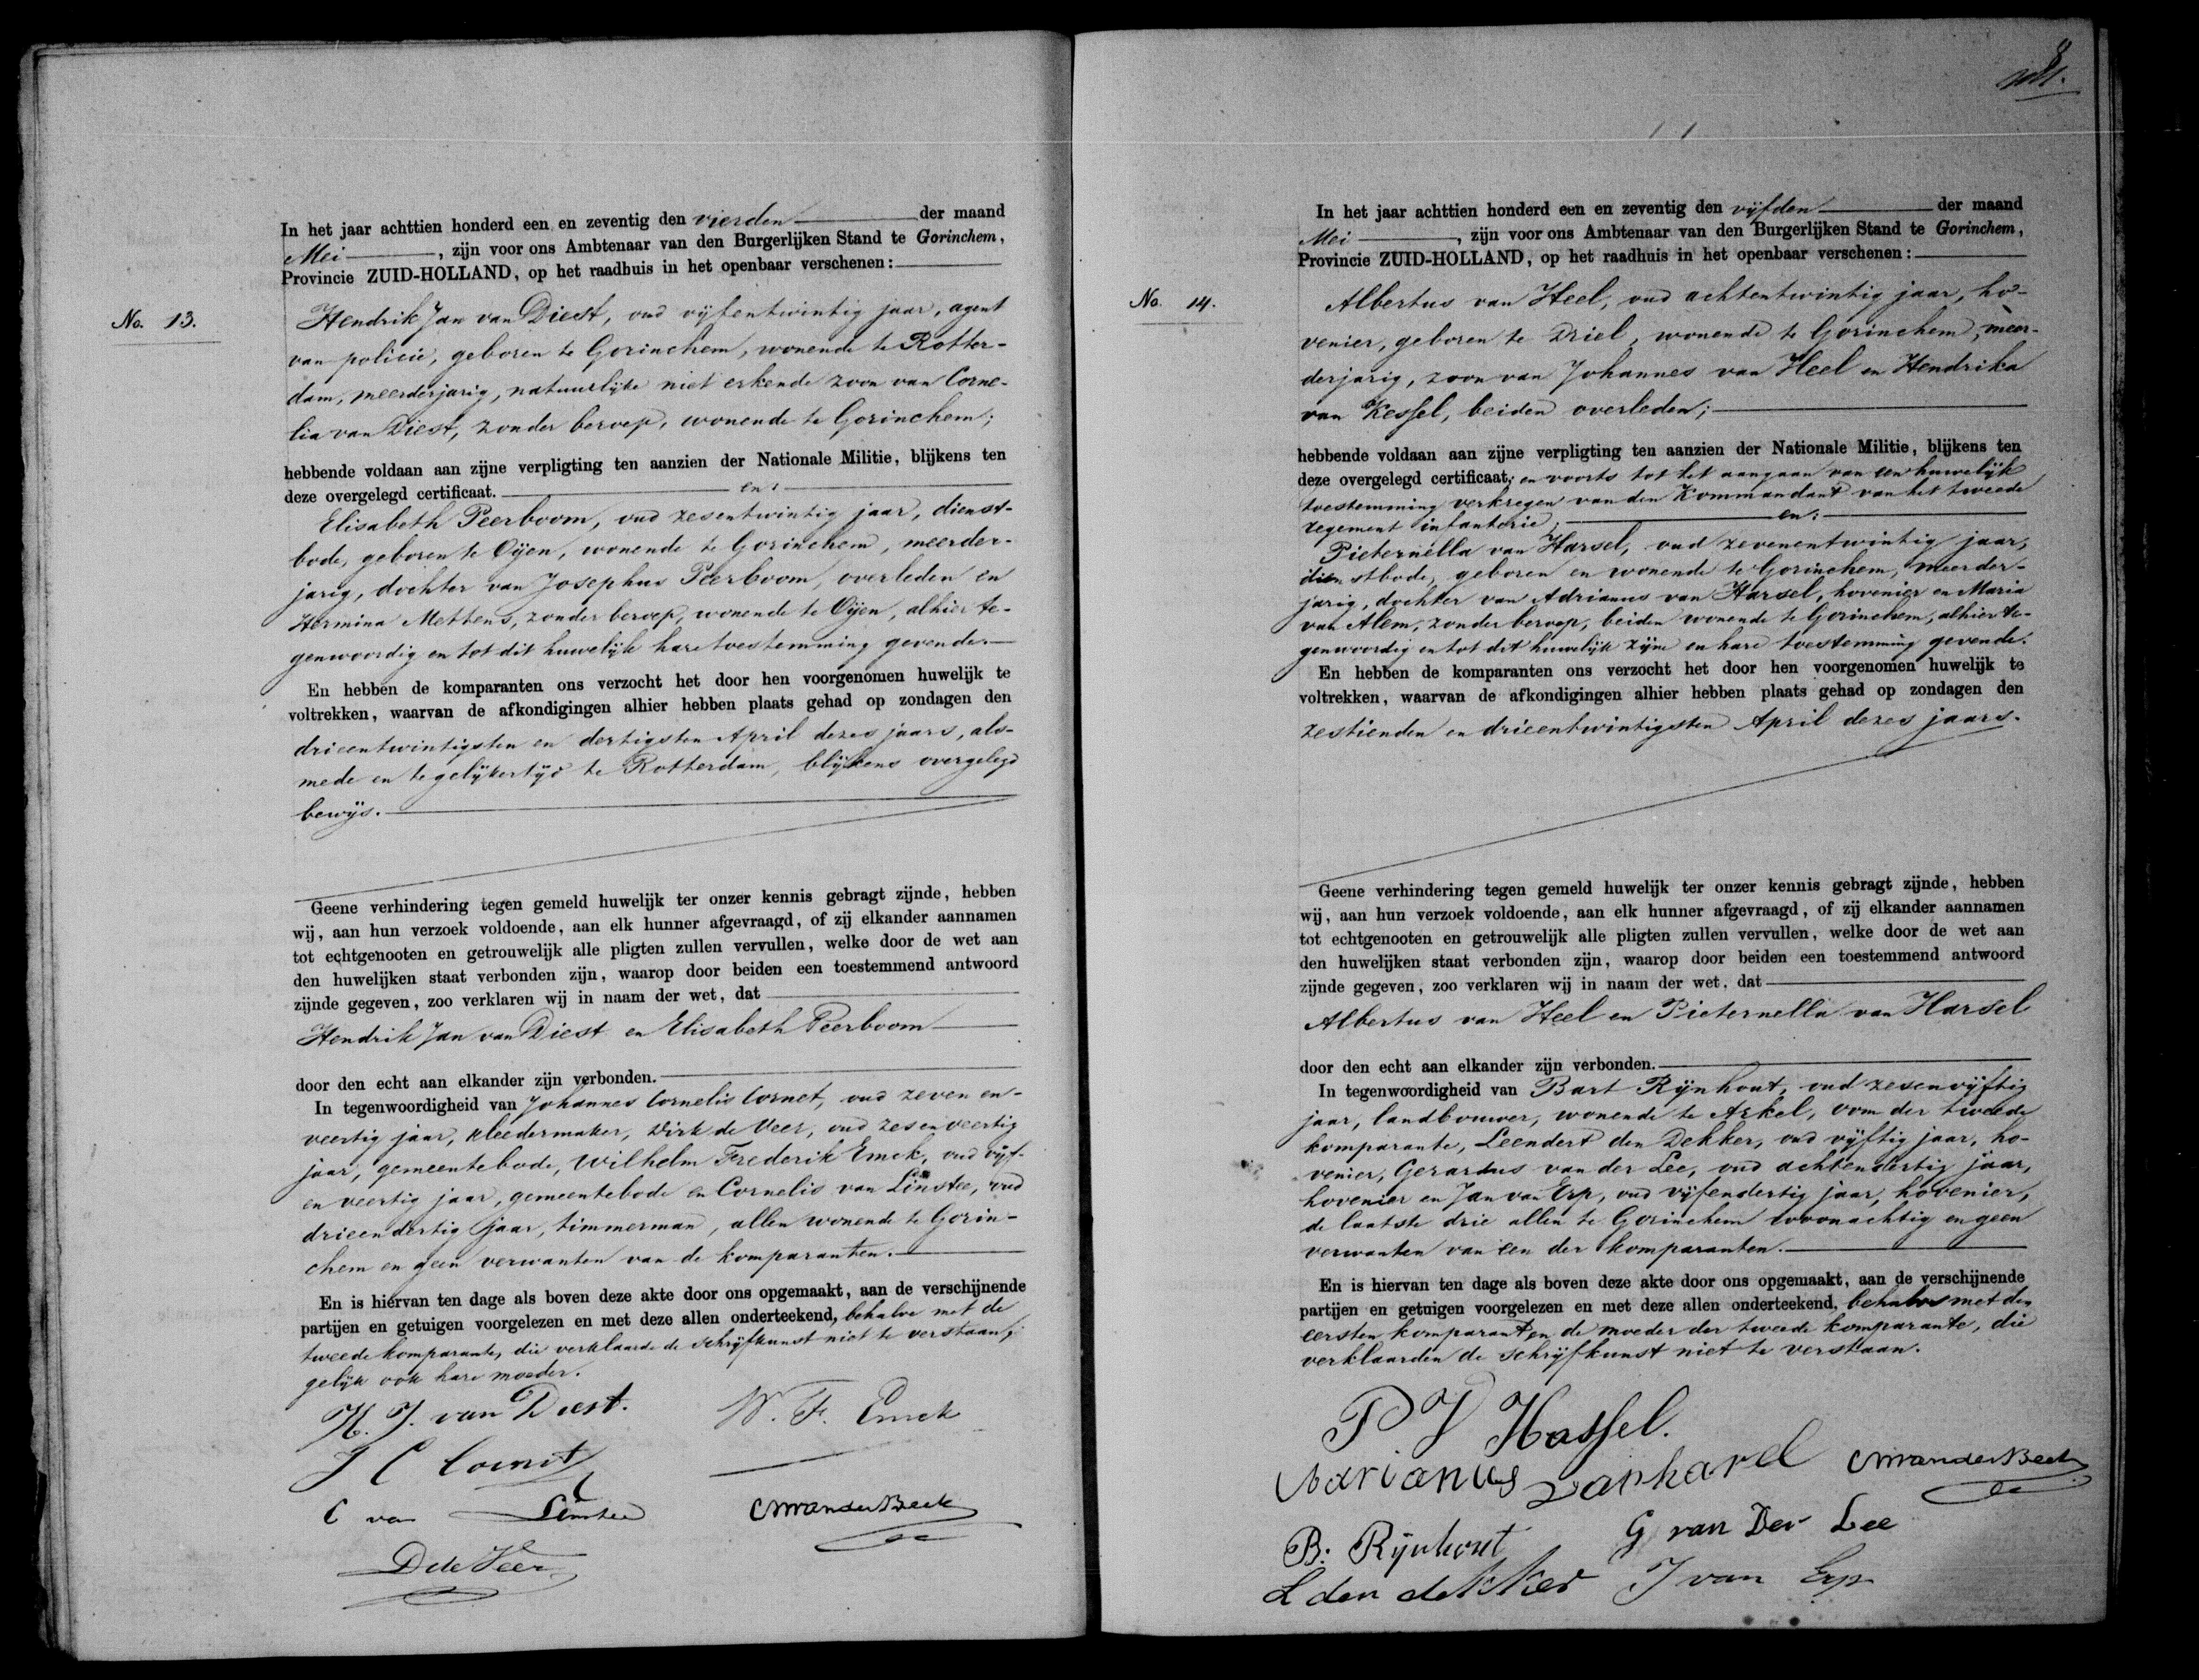 In het jaar achttien honderd een en zeventig den vierden der maand
Mei, zijn voor ons Ambtenaar van den Burgerlijken Stand te Gorinchem,
Provincie ZUID-HOLLAND, op het raadhuis in het openbaar verschenen:
No. 13.
Hendrik Jan van Diest, oud vijfentwintig jaar, agent
van policie, geboren te Gorinchem, wonende te Rotter-
dam, meerderjarig, natuurlijke niet erkende zoon van Corne-
lia van Diest, zonder beroep, wonende te Gorinchem;
hebbende voldaan aan zijne verpligting ten aanzien der Nationale Militie, blijkens ten
deze overgelegd certificaat. en:
Elisabeth Peerboom, oud zesentwintig jaar, dienst-
bode, geboren te Oijen, wonende te Gorinchem, meerder-
jarig, dochter van Josephus Peerboom, overleden en
Hermina Mettens, zonder beroep, wonende te Oijen, alhier te-
genwoordig en tot dit huwelijk hare toestemming gevende.
En hebben de komparanten ons verzocht het door hen voorgenomen huwelijk te
voltrekken, waarvan de afkondigingen alhier hebben plaats gehad op zondagen den
drieentwintigsten en dertigsten April dezes jaars, als-
mede en tegelijkertijd te Rotterdam, blijkens overgelegd
bewijs.
Geene verhindering tegen gemeld huwelijk ter onzer kennis gebragt zijnde, hebben
wij, aan hun verzoek voldoende, aan elk hunner afgevraagd, of zij elkander aannamen
tot echtgenooten en getrouwelijk alle pligten zullen vervullen, welke door de wet aan
den huwelijken staat verbonden zijn, waarop door beiden een toestemmend antwoord
zijnde gegeven, zoo verklaren wij in naam der wet, dat
Hendrik Jan van Diest en Elisabeth Peerboom
door den echt aan elkander zijn verbonden.
In tegenwoordigheid van Johannes Cornelis Cornet, oud zeven en-
veertig jaar, kleedermaker, Dirk de Veer, oud zesenveertig
jaar, gemeentebode, Wilhelm Frederik Emck, oud vijf-
en veertig jaar, gemeentebode en Cornelis van Linstee, oud
drieendertig jaar, timmerman, allen wonende te Gorin-
chem en geen verwanten van de komparanten.
En is hiervan ten dage als boven deze akte door ons opgemaakt, aan de verschijnende
partijen en getuigen voorgelezen en met deze allen onderteekend, behalve met de
tweede komparante, die verklaarde de schrijfkunst niet te verstaan,
gelijk ook hare moeder.
H. J. van Diest.
W. F. Emck
J C Cornet
C van Linstee
CMvanderBeek
D de Veer
8
In het jaar achttien honderd een en zeventig den vijfden der maand
Mei, zijn voor ons Ambtenaar van den Burgerlijken Stand te Gorinchem,
Provincie ZUID-HOLLAND, op het raadhuis in het openbaar verschenen:
No. 14.
Albertus van Heel, oud achtentwintig jaar, ho-
venier, geboren te Driel, wonende te Gorinchem, meer-
derjarig, zoon van Johannes van Heel en Hendrika
van Kessel, beiden overleden;
hebbende voldaan aan zijne verpligting ten aanzien der Nationale Militie, blijkens ten
deze overgelegd certificaat, en voorts tot het aangaan van een huwelijk
toestemming verkregen van den Kommandant van het tweede
regement infanterie; en:
Pieternella van Harsel, oud zevenentwintig jaar,
dienstbode, geboren en wonende te Gorinchem, meerder-
jarig, dochter van Adrianus van Harsel, hovenier en Maria
van Alem, zonder beroep, beiden wonende te Gorinchem, alhier te-
genwoordig en tot dit huwelijk zijne en hare toestemming gevende.
En hebben de komparanten ons verzocht het door hen voorgenomen huwelijk te
voltrekken, waarvan de afkondigingen alhier hebben plaats gehad op zondagen den
zestienden en drieentwintigsten April dezes jaars.
Geene verhindering tegen gemeld huwelijk ter onzer kennis gebragt zijnde, hebben
wij, aan hun verzoek voldoende, aan elk hunner afgevraagd, of zij elkander aannamen
tot echtgenooten en getrouwelijk alle pligten zullen vervullen, welke door de wet aan
den huwelijken staat verbonden zijn, waarop door beiden een toestemmend antwoord
zijnde gegeven, zoo verklaren wij in naam der wet, dat
Albertus van Heel en Pieternella van Harsel
door den echt aan elkander zijn verbonden.
In tegenwoordigheid van Bart Rijnhout, oud zesenvijftig
jaar, landbouwer, wonende te Arkel, oom der tweede
komparante, Leendert den Dekker, oud vijftig jaar, ho-
venier, Gerardus van der Lee, oud achtendertig jaar,
hovenier en Jan van Erp, oud vijfendertig jaar, hovenier,
de laatste drie allen te Gorinchem woonachtig en geen
verwanten van een der komparanten.
En is hiervan ten dage als boven deze akte door ons opgemaakt, aan de verschijnende
partijen en getuigen voorgelezen en met deze allen onderteekend, behalve met den
eersten komparant en de moeder der tweede komparante, die
verklaarden de schrijfkunst niet te verstaan.
P V Hassel.
Adrianus vanharel
CMvanderBeek
B. Rijnhout
G van Der Lee
L den dekker
J van Erp